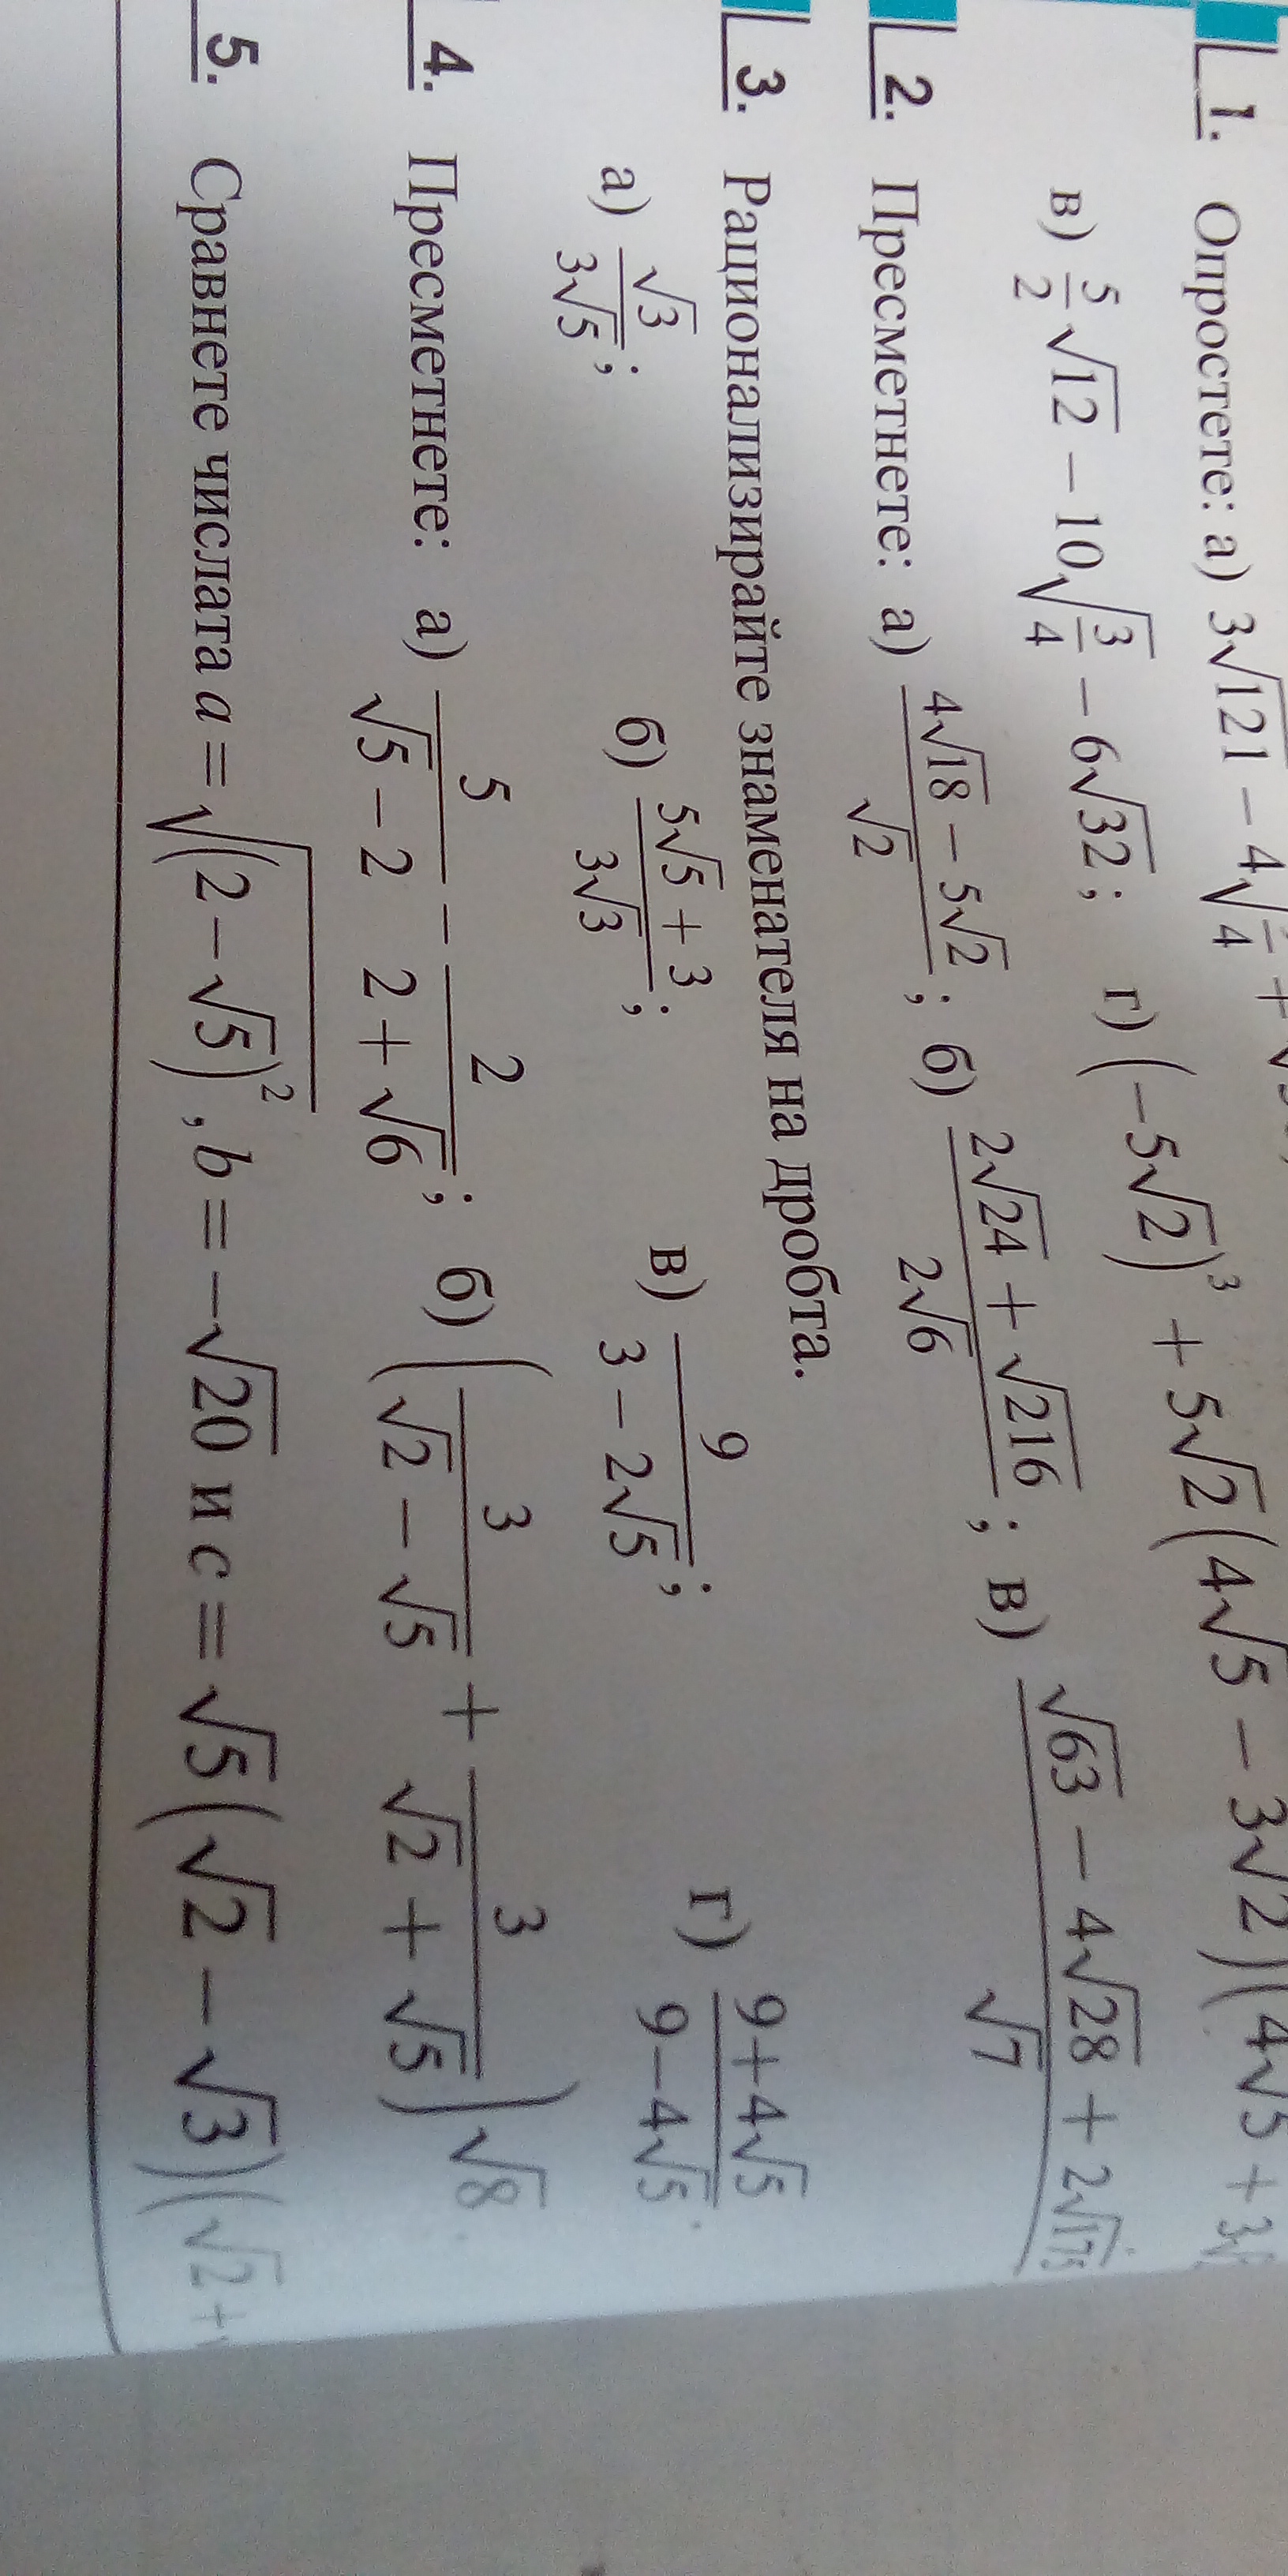 1. Опростете: а) 3√121 − 4√
в) 5/2 √12 − 10√(3/4) − 6√32; г) (−5√2)³ + 5√2(4√5 − 3√2)(4√5 + 3
2. Пресметнете: а) (4√18 − 5√2)/√2; б) (2√24 + √216)/(2√6); в) (√63 − 4√28 + 2√175)/√7
3. Рационализирайте знаменателя на дробта.
а) √3/(3√5); б) (5√5 + 3)/(3√3); в) 9/(3 − 2√5); г) (9+4√5)/(9−4√5).
4. Пресметнете: а) 5/(√5 − 2) − 2/(2 + √6); б) (3/(√2 − √5) + 3/(√2 + √5))√8.
5. Сравнете числата a = √((2 − √5)²), b = −√20 и c = √5(√2 − √3)(√2 +